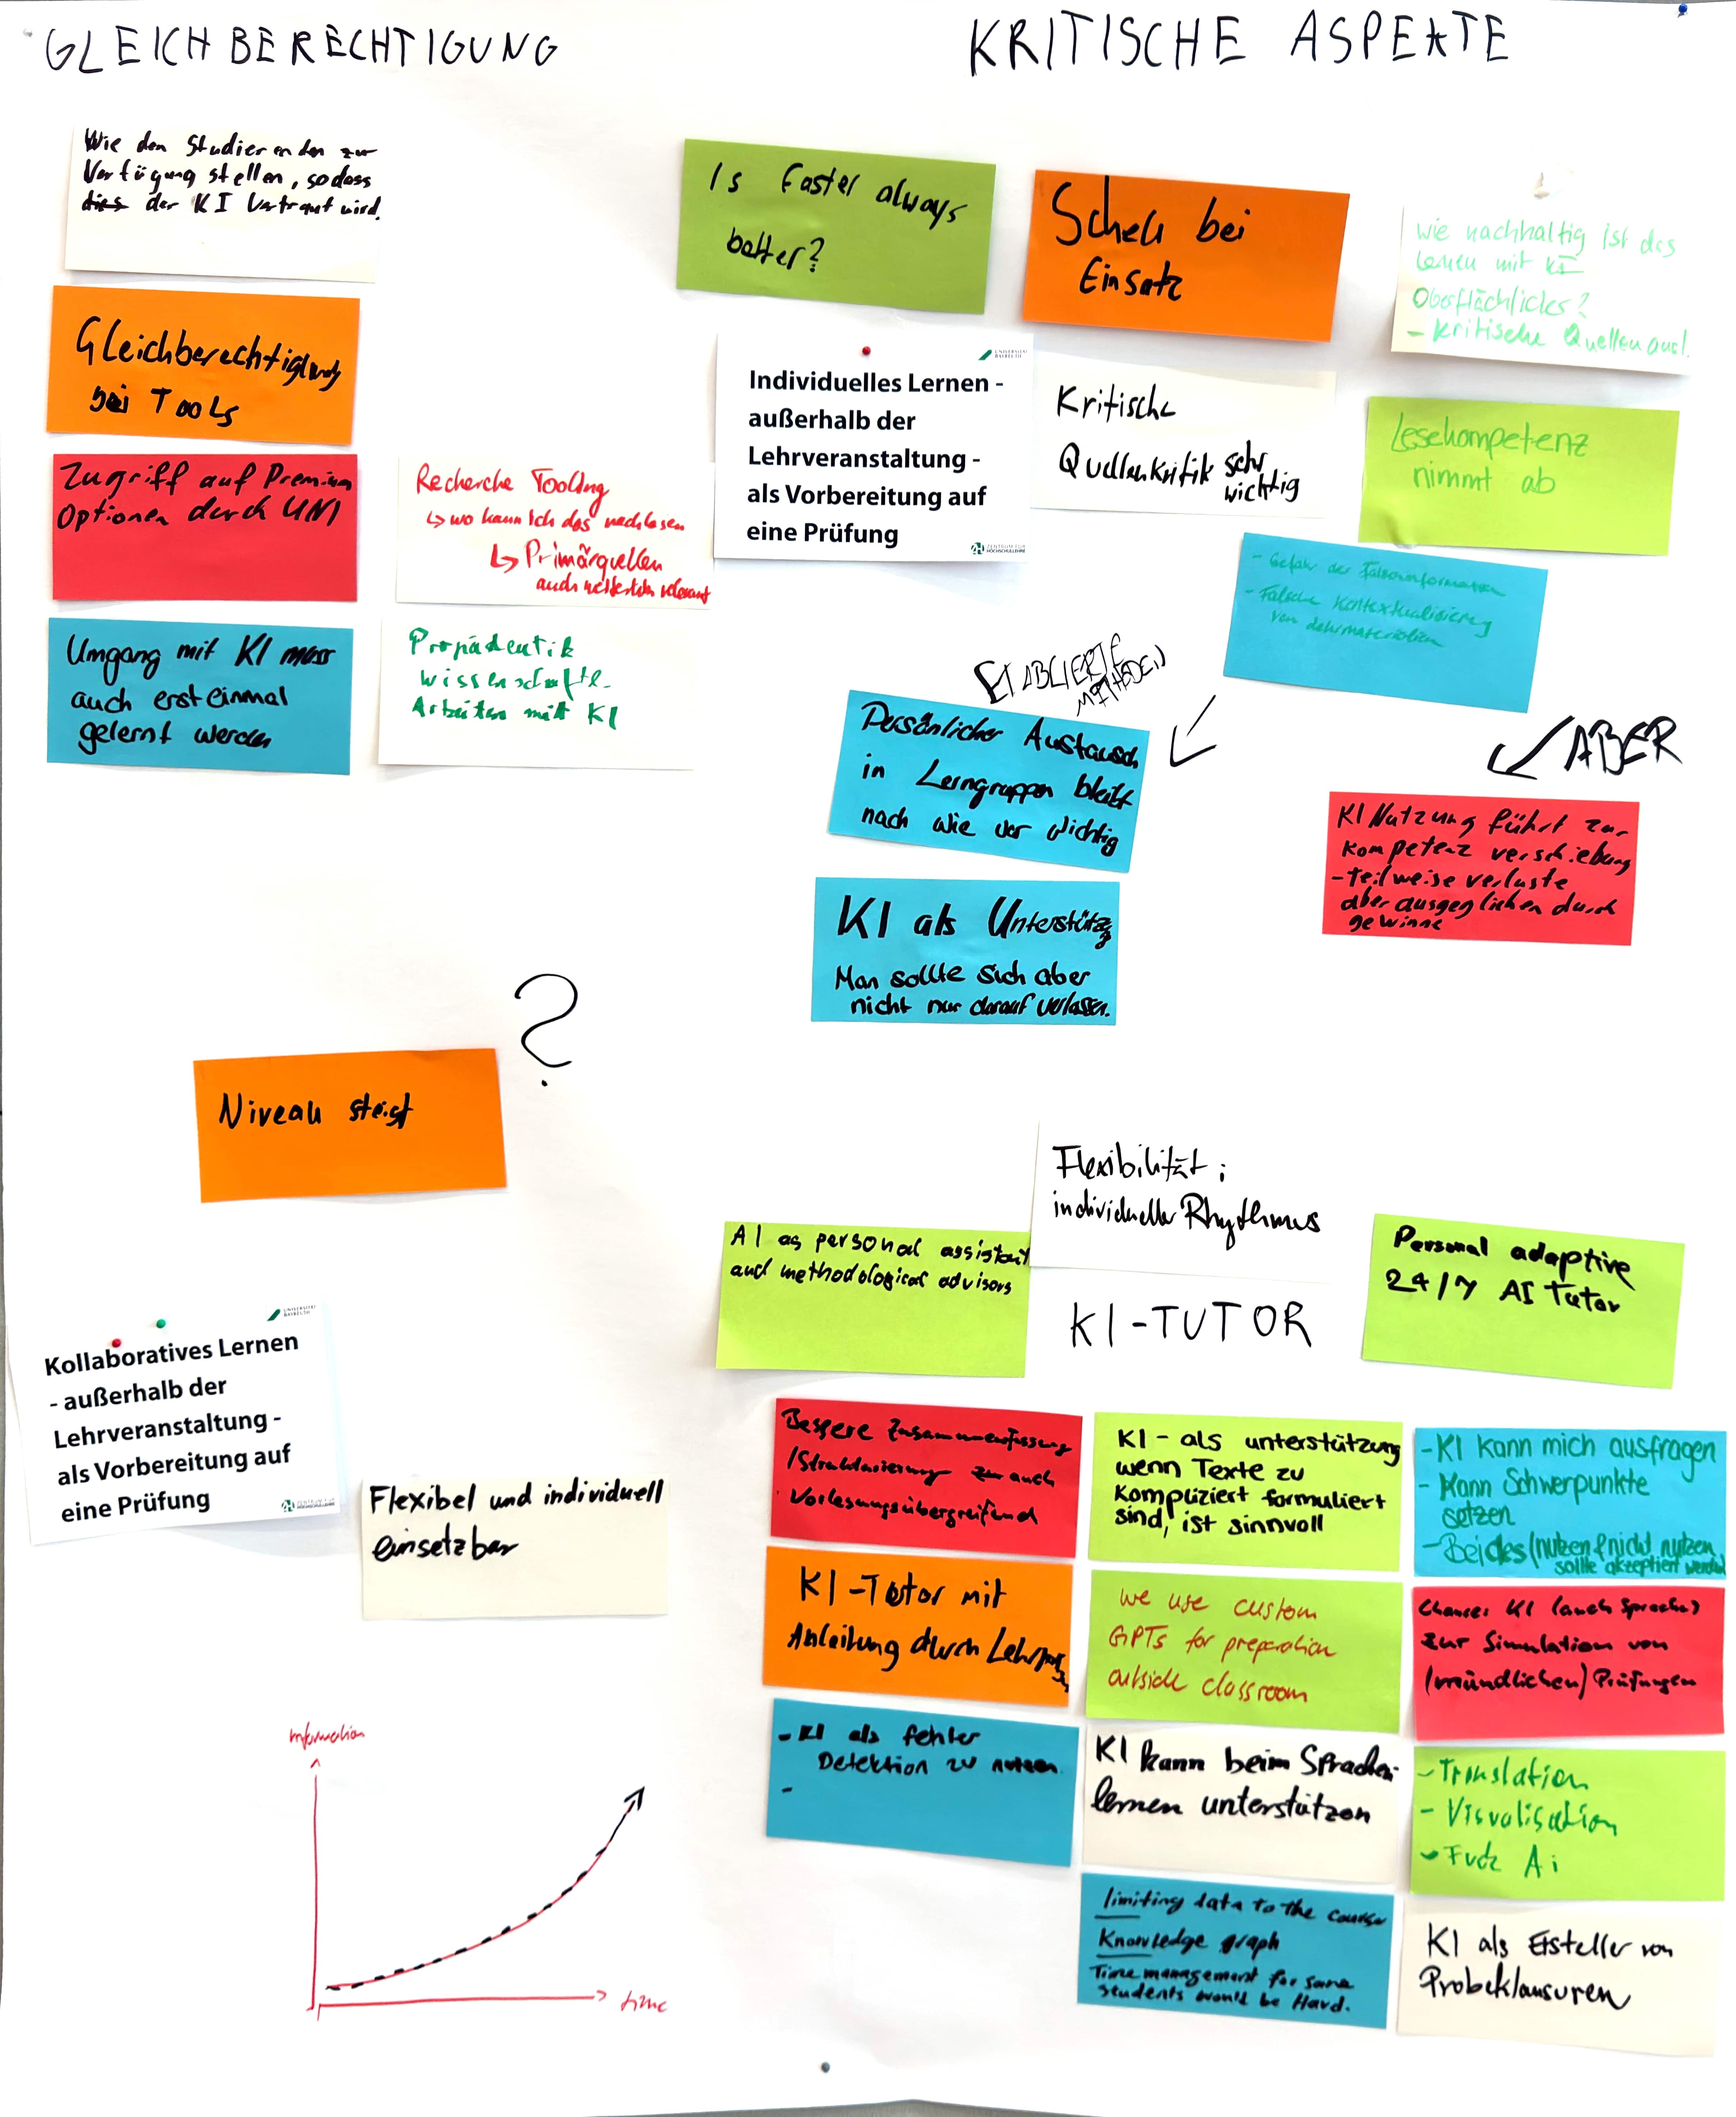 GLEICHBERECHTIGUNG
KRITISCHE ASPEKTE
Wie den Studierenden zur
Verfügung stellen, sodass
dies der KI Vertraut wird.
Gleichberechtigung
bei Tools
Zugriff auf Premium
Optionen durch UNI
Umgang mit KI muss
auch erst einmal
gelernt werden
Recherche Tooling
↳ wo kann ich das nachlesen
↳ Primärquellen
auch weiterhin relevant
Propädeutik
wissenschaftl.
Arbeiten mit KI
Is Faster always
better?
Scheu bei
Einsatz
wie nachhaltig ist das
lernen mit KI
Oberflächliches?
- kritische Quellenausl.
UNIVERSITÄT
BAYREUTH
Individuelles Lernen -
außerhalb der
Lehrveranstaltung -
als Vorbereitung auf
eine Prüfung
ZENTRUM FÜR
HOCHSCHULLEHRE
Kritische
Quellenkritik sehr
wichtig
Lesekompetenz
nimmt ab
- Gefahr der Falschinformation
- Falsche Kontextualisierung
von Lehrmaterialien
ETABLIERTE
METHODEN
Persönlicher Austausch
in Lerngruppen bleibt
nach wie vor wichtig
KI als Unterstützg
Man sollte sich aber
nicht nur darauf verlassen.
ABER
KI Nutzung führt zur
Kompetenz verschiebung
- teilweise verluste
aber ausgeglichen durch
gewinne
?
Niveau steigt
UNIVERSITÄT
BAYREUTH
Kollaboratives Lernen
- außerhalb der
Lehrveranstaltung -
als Vorbereitung auf
eine Prüfung
ZENTRUM FÜR
HOCHSCHULLEHRE
Flexibel und individuell
einsetzbar
Information
time
Flexibilität;
individueller Rhythmus
AI as personal assistant
and methodological advisors
KI-TUTOR
Personal adaptive
24/7 AI Tutor
Bessere Zusammenfassung
/Strukturierung zu auch
Vorlesungsübergreifend
KI - als unterstützung
wenn Texte zu
Kompliziert formuliert
sind, ist sinnvoll
- KI kann mich ausfragen
- Kann Schwerpunkte
setzen
- Beides (nutzen & nicht nutzen
sollte akzeptiert werden)
KI-Tutor mit
Anleitung durch
we use custom
GPTs for preparation
outside classroom
Chance: KI (auch Sprache)
zur Simulation von
(mündlichen) Prüfungen
- KI als fehler
Detektion zu nutzen.
-
KI kann beim Sprachen-
lernen unterstützen
- Translation
- Visualisation
- Ai
limiting data to the course
Knowledge graph
Time management for some
students would be Hard.
KI als Ersteller von
Probeklausuren